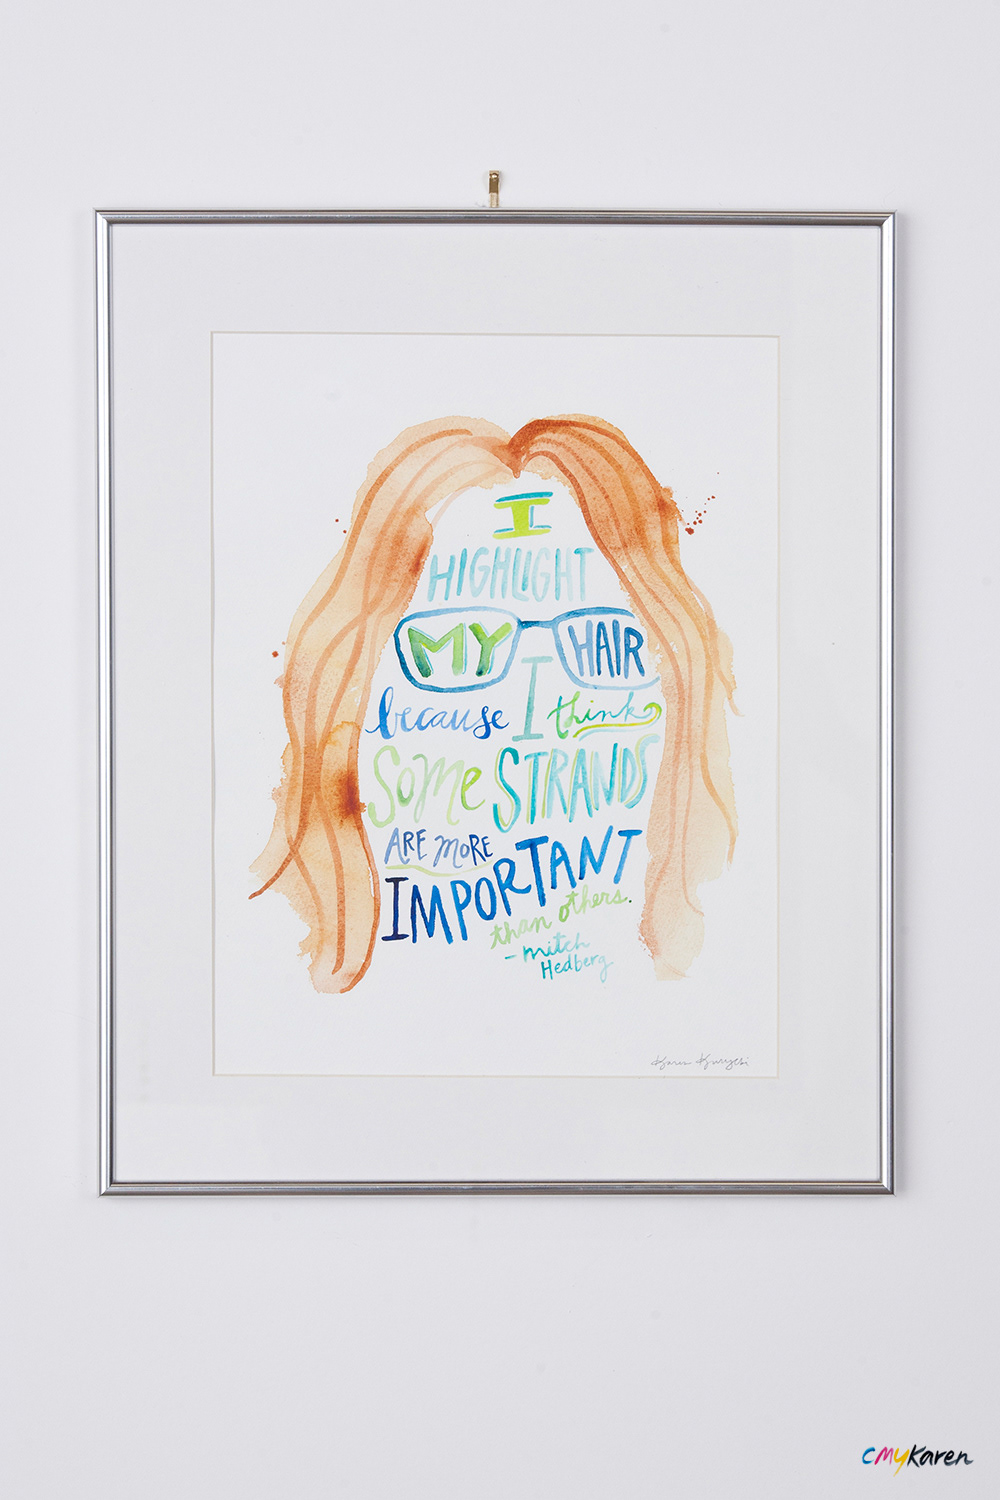 I
HIGHLIGHT
MY HAIR
because I think
Some STRANDS
ARE MORE
IMPORTANT
than others.
- mitch
Hedberg
CMYKaren